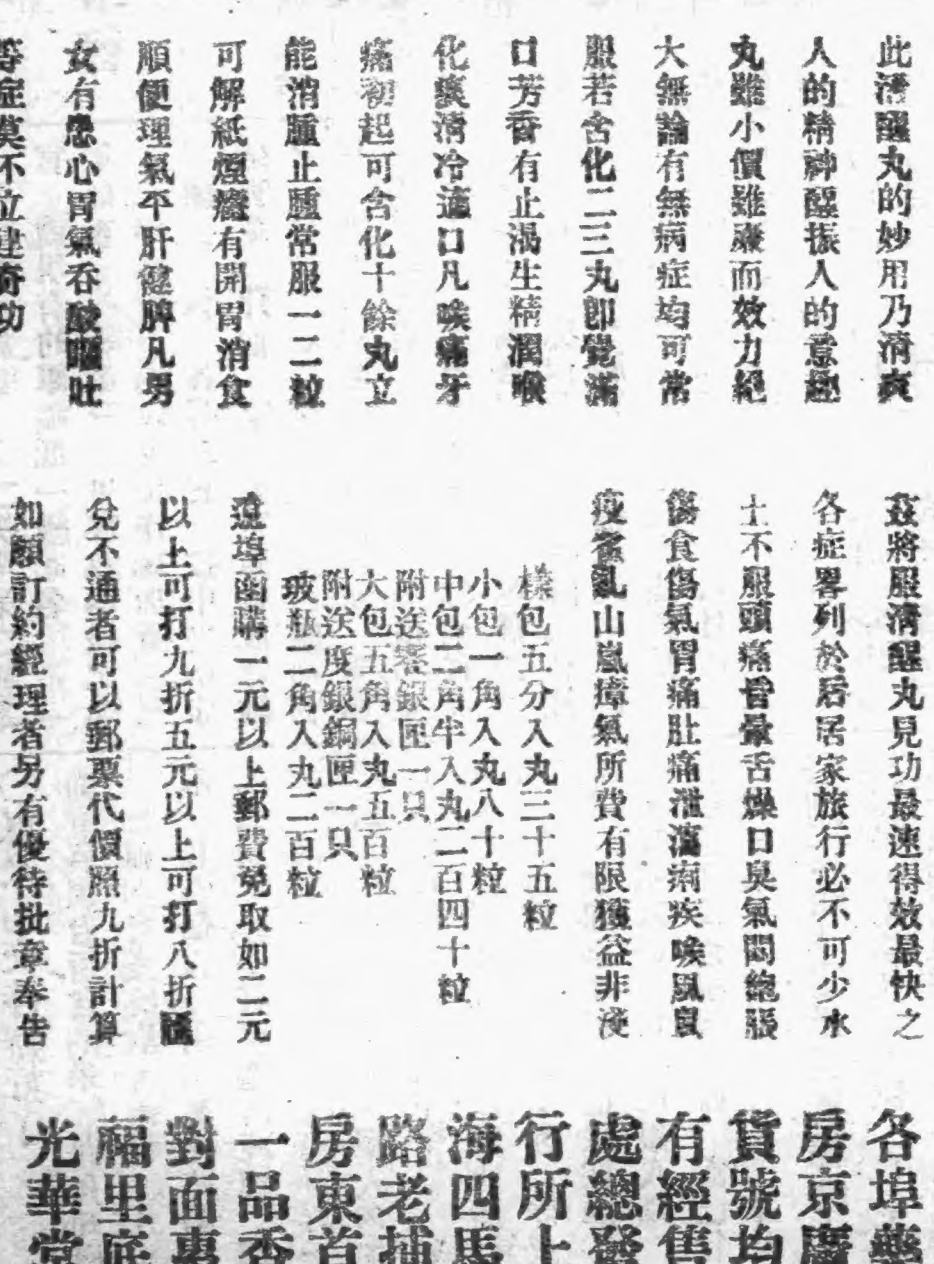 此清醒丸的妙用乃清爽
人的精神醒振人的意趣
丸雖小價雖廉而效力絕
大無論有無病症均可常
服若含化二三丸即覺滿
口芳香有止渴生精潤喉
化痰清冷適口凡喉痛牙
痛初起可含化十餘丸立
能消腫止腫常服一二粒
可解紙煙癮有開胃消食
順便理氣平肝健脾凡男
女有患心胃氣吞酸嘔吐
等症莫不立建奇功
茲將服清醒丸見功最速得效最快之
各症畧列於后居家旅行必不可少水
土不服頭痛昏暈舌燥口臭氣悶
傷食傷氣胃痛肚痛泄瀉痢疾喉風
霍亂山嵐瘴氣所費有限獲益非淺
樣包五分入丸三十五粒
小包一角入丸八十粒
中包二角半入丸二百四十粒
附送銀匣一只
大包五角入丸五百粒
附送度銀鋼匣一只
玻瓶二角入丸二百粒
遠埠函購一元以上郵費免取如二元
以上可打九折五元以上可打八折匯
兌不通者可以郵票代價照九折計算
如願訂約經理者另有優待批章奉告
各埠藥
房京廣
貨號均
有經售
處總發
行所上
海四馬
路老捕
房東首
一品香
對面惠
福里底
光華堂